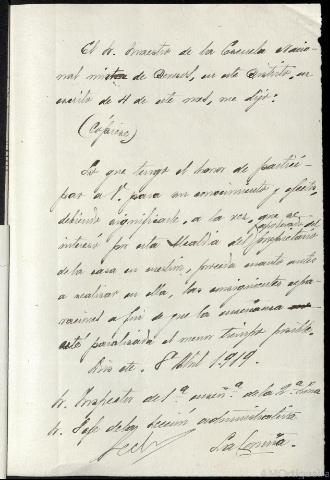 El Sr. Maestro de la Escuela Nacio-
nal mixta de Doneos, en este Distrito, en
escrito de 4 de este mes, me dijo:
(Cópiese)
Lo que tengo el honor de partici-
par a V. para su conocimiento y efectos,
debiendo significarle, a la vez, que se
interesó por esta Alcaldía del apoderado del propietario
de la casa en cuestión, proceda cuanto antes
a realizar en ella, las consiguientes repa-
raciones a fin de que la enseñanza
esté paralizada el menor tiempo posible.
Dios etc. 8 Abril 1.919.
Sr. Inspector de 1ª enseñª de la 2ª Zona
Sr. Jefe de la Sección administrativa
La Coruña.